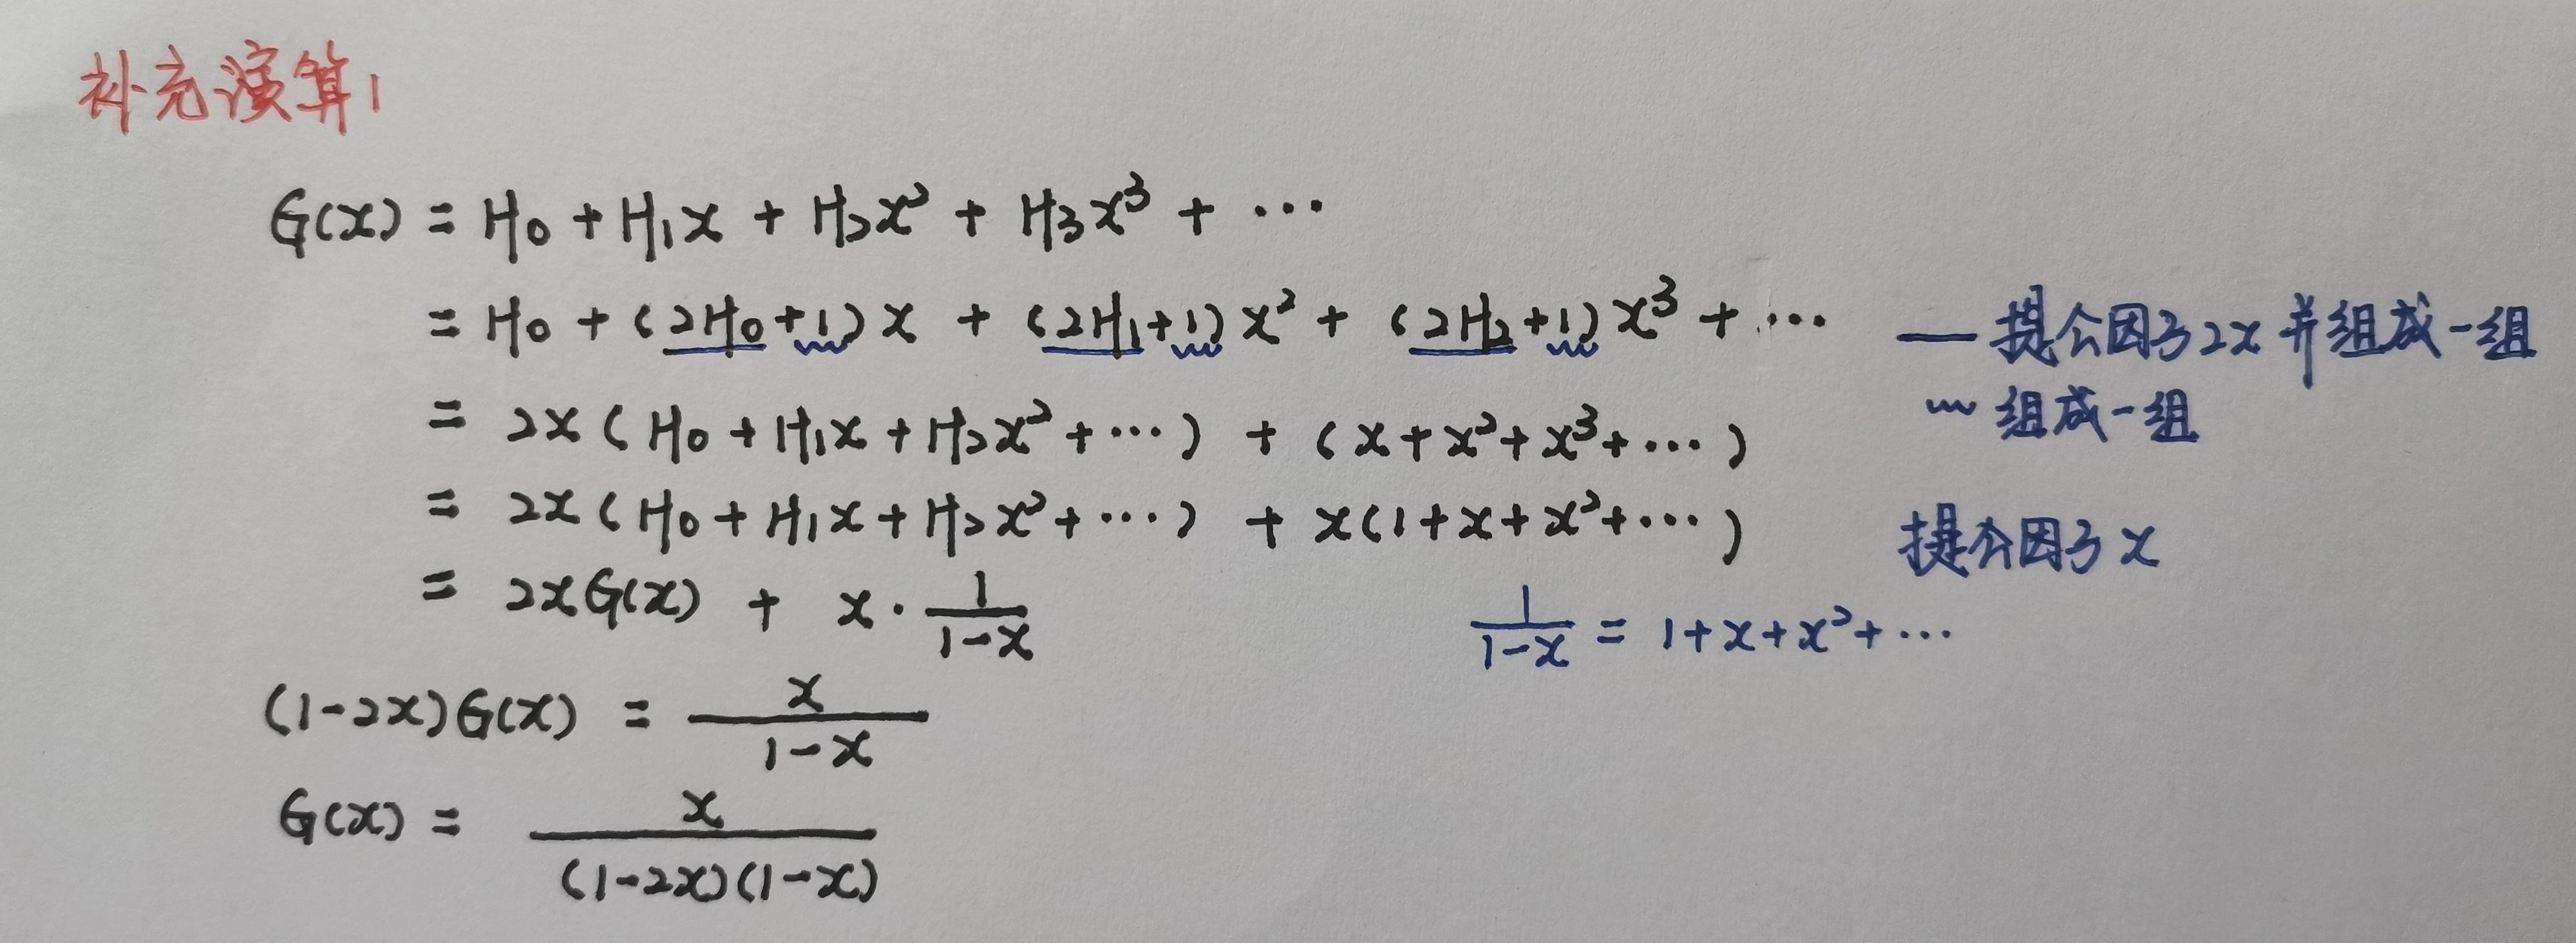 补充演算1
G(x) = H₀ + H₁x + H₂x² + H₃x³ + ···
= H₀ + (2H₀+1)x + (2H₁+1)x² + (2H₂+1)x³ + ··· — 提公因子2x并组成一组
= 2x(H₀ + H₁x + H₂x² + ···) + (x + x² + x³ + ···) 〰 组成一组
= 2x(H₀ + H₁x + H₂x² + ···) + x(1 + x + x² + ···) 提公因子x
= 2xG(x) + x · 1/(1-x) 1/(1-x) = 1 + x + x² + ···
(1-2x)G(x) = x/(1-x)
G(x) = x/((1-2x)(1-x))